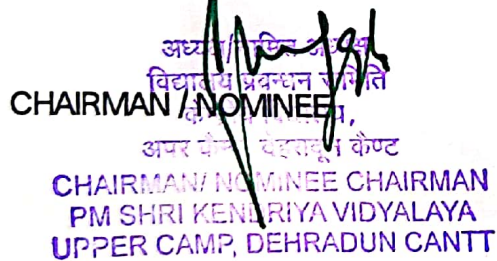 अध्यक्ष/नामित अध्यक्ष
विद्यालय प्रबन्धन समिति
CHAIRMAN / NOMINEE
अपर कैम्प, देहरादून कैण्ट
CHAIRMAN/ NOMINEE CHAIRMAN
PM SHRI KENDRIYA VIDYALAYA
UPPER CAMP, DEHRADUN CANTT